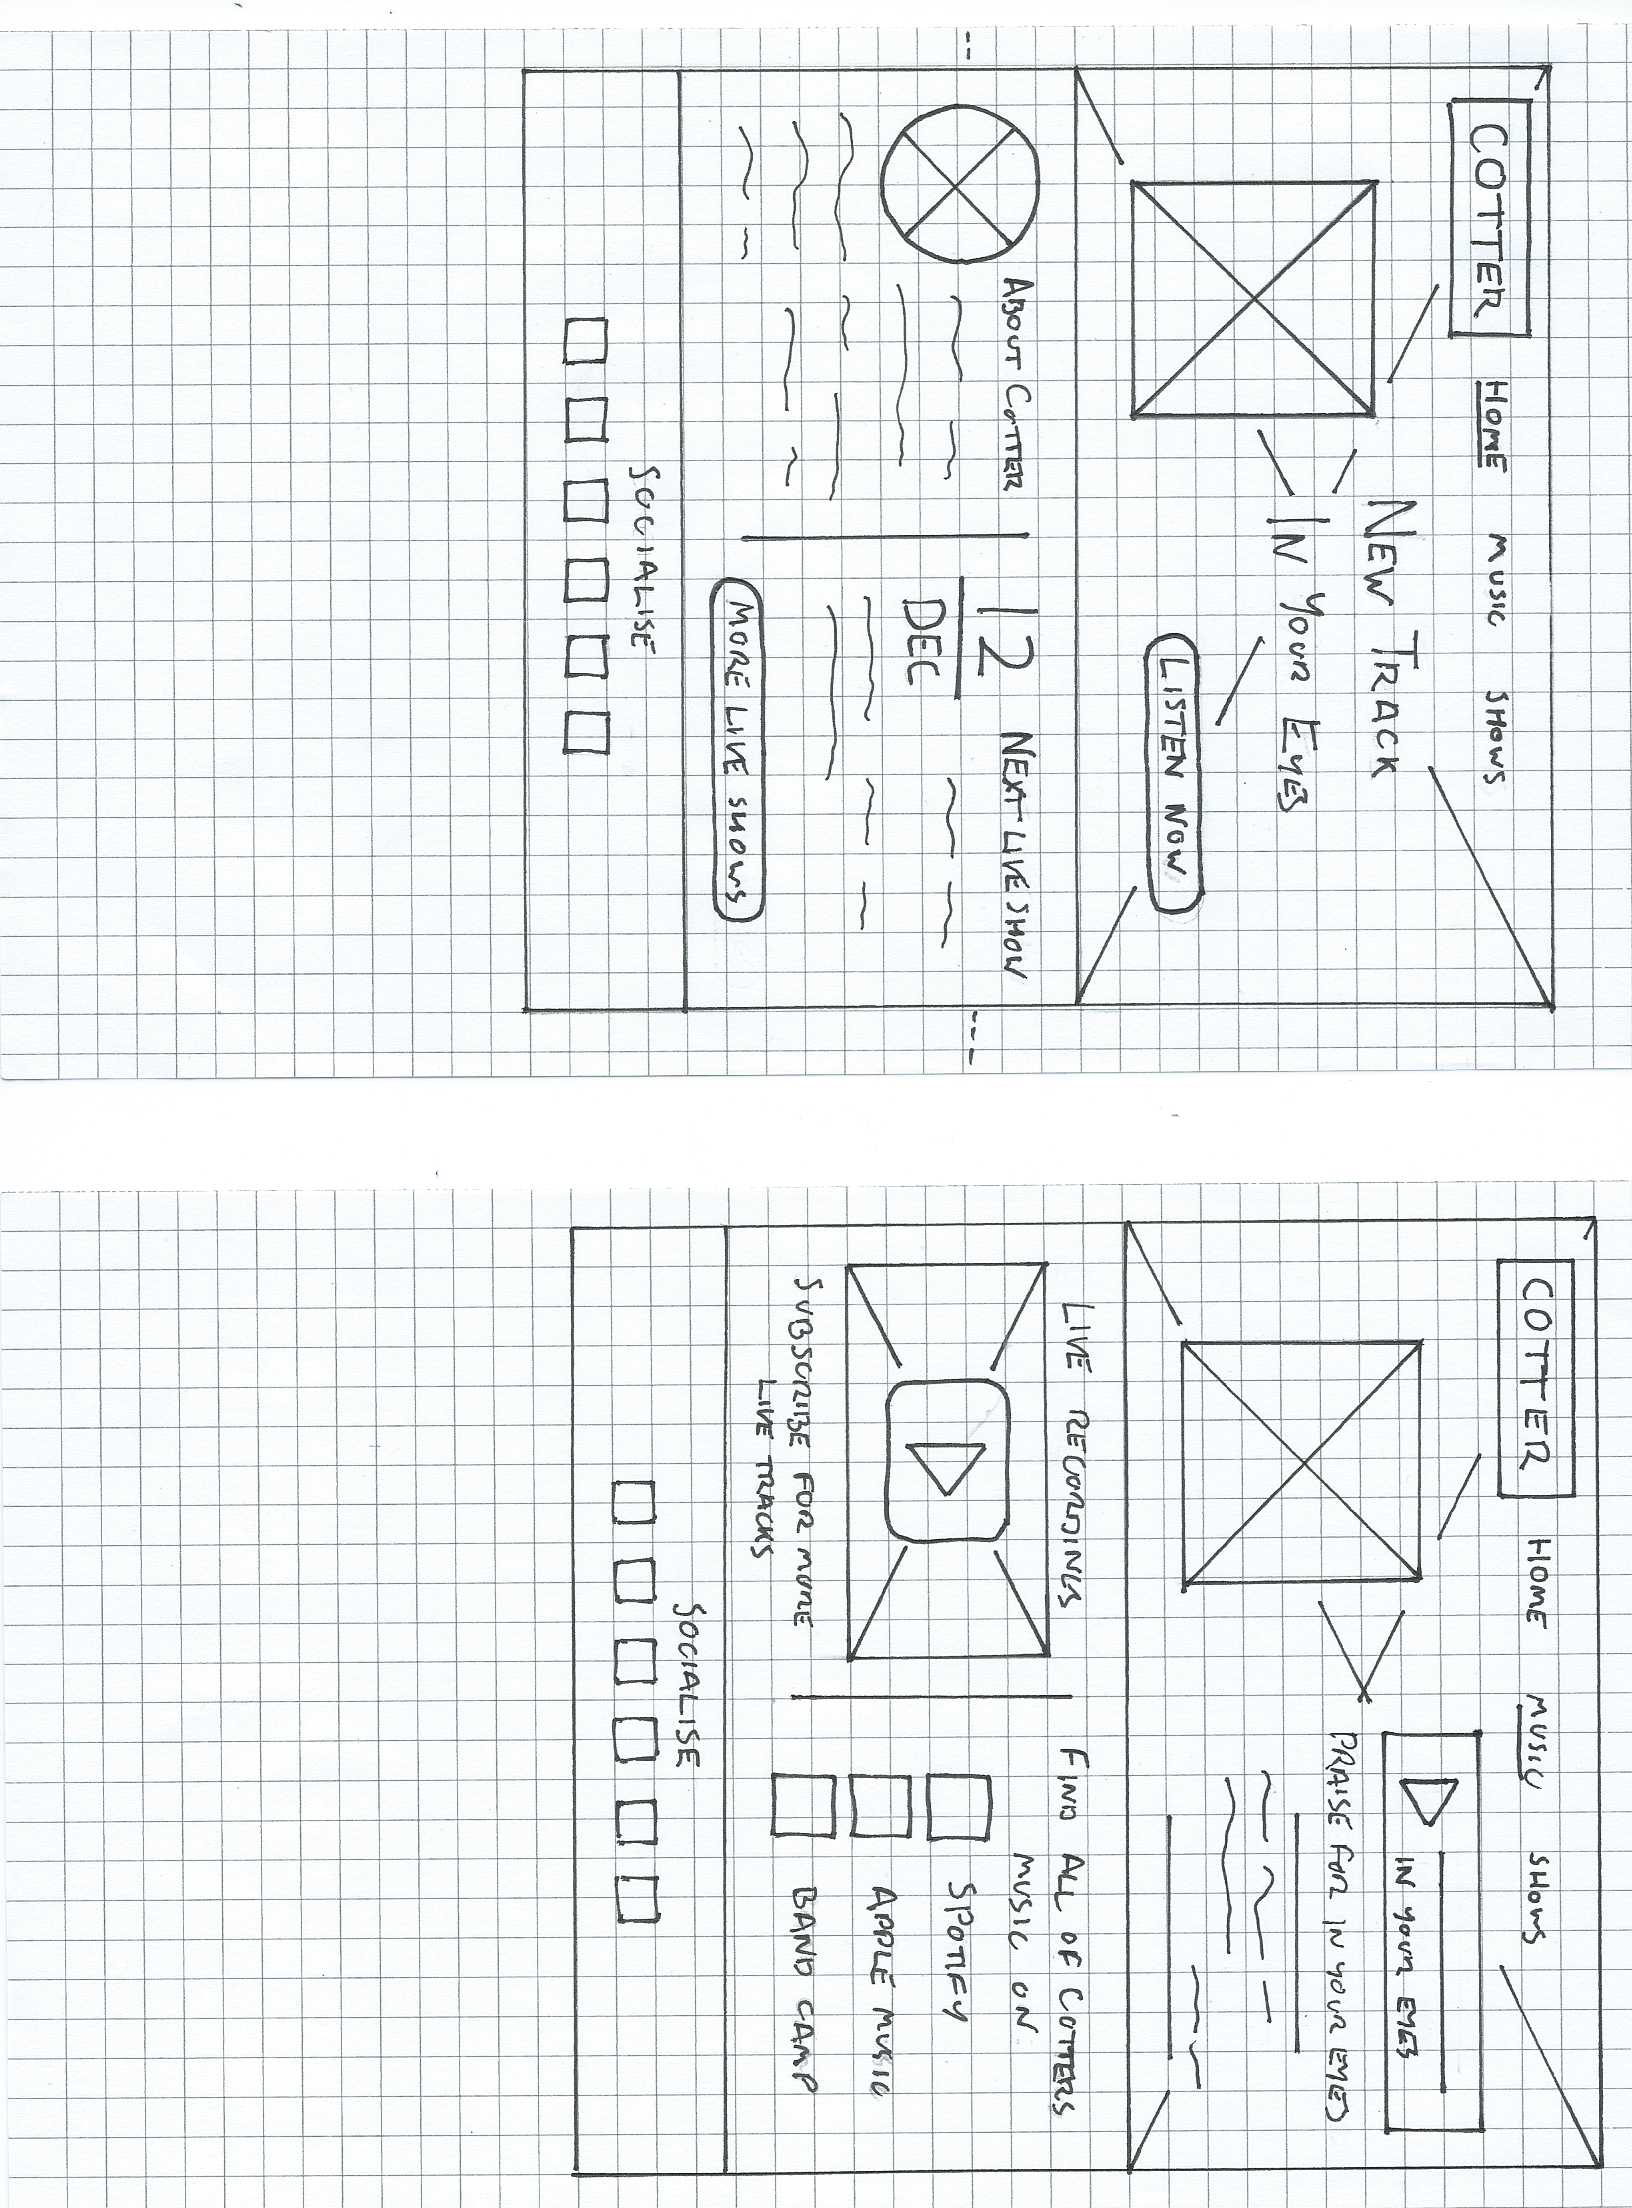 COTTER HOME MUSIC SHOWS
NEW TRACK
IN YOUR EYES
LISTEN NOW
ABOUT COTTER
12
DEC
NEXT LIVE SHOW
MORE LIVE SHOWS
SOCIALISE
COTTER HOME MUSIC SHOWS
IN YOUR EYES
PRAISE FOR IN YOUR EYES
LIVE RECORDINGS
SUBSCRIBE FOR MORE
LIVE TRACKS
FIND ALL OF COTTERS
MUSIC ON
SPOTIFY
APPLE MUSIC
BAND CAMP
SOCIALISE